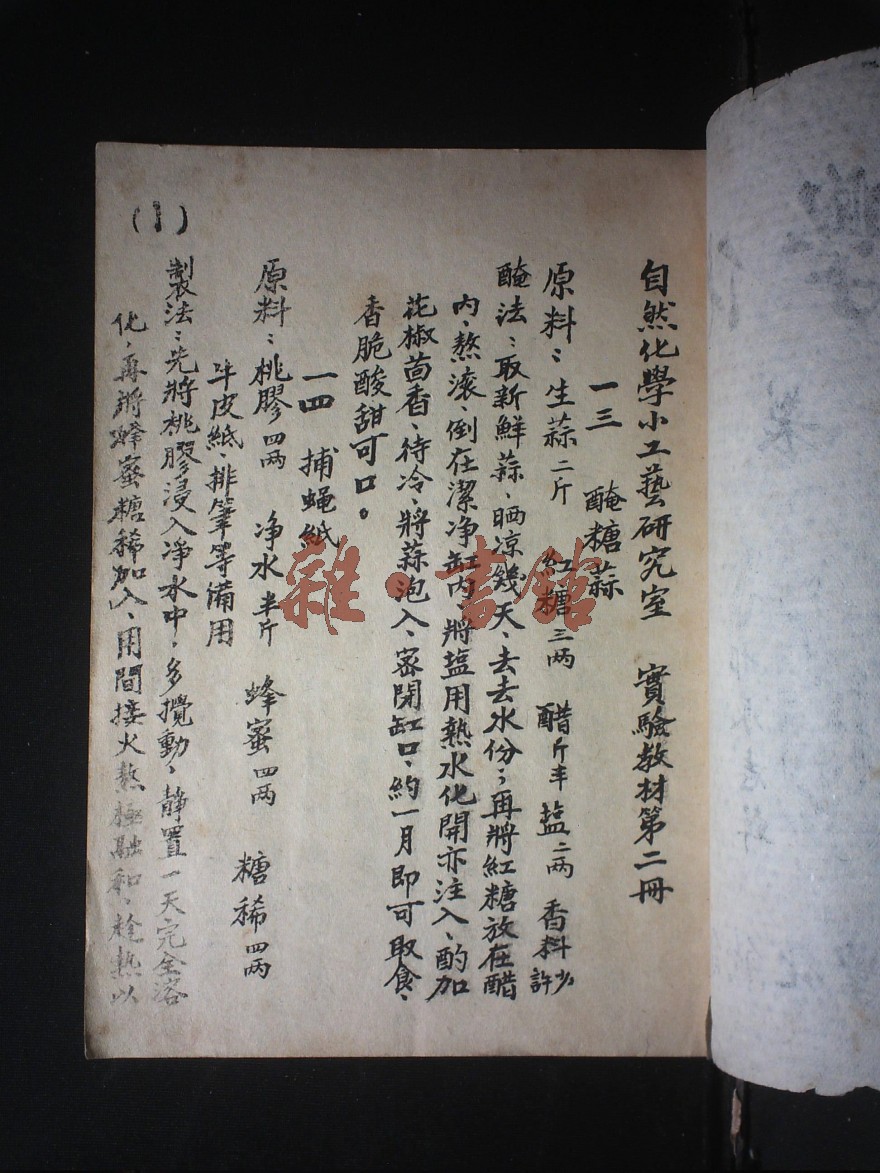 自然化學小工藝研究室　實驗教材第二冊
一三　醃糖蒜
原料：生蒜二斤　紅糖三两　醋斤半　塩二两　香料少許
醃法：取新鮮蒜、晒凉幾天、去去水份；再將紅糖放在醋
内、熬滚、倒在潔净缸内、將塩用熱水化開亦注入、酌加
花椒茴香、待冷、將蒜泡入、密閉缸口、約一月即可取食、
香脆酸甜可口。
一四　捕蝇紙
原料：桃膠四两　净水半斤　蜂蜜四两　糖稀四两
牛皮紙、排筆等備用
製法：先將桃膠浸入净水中、多攪動、静置一天完全溶
化、再將蜂蜜糖稀加入、用間接火熬極融和、趁熱以
(1)
雜·書館